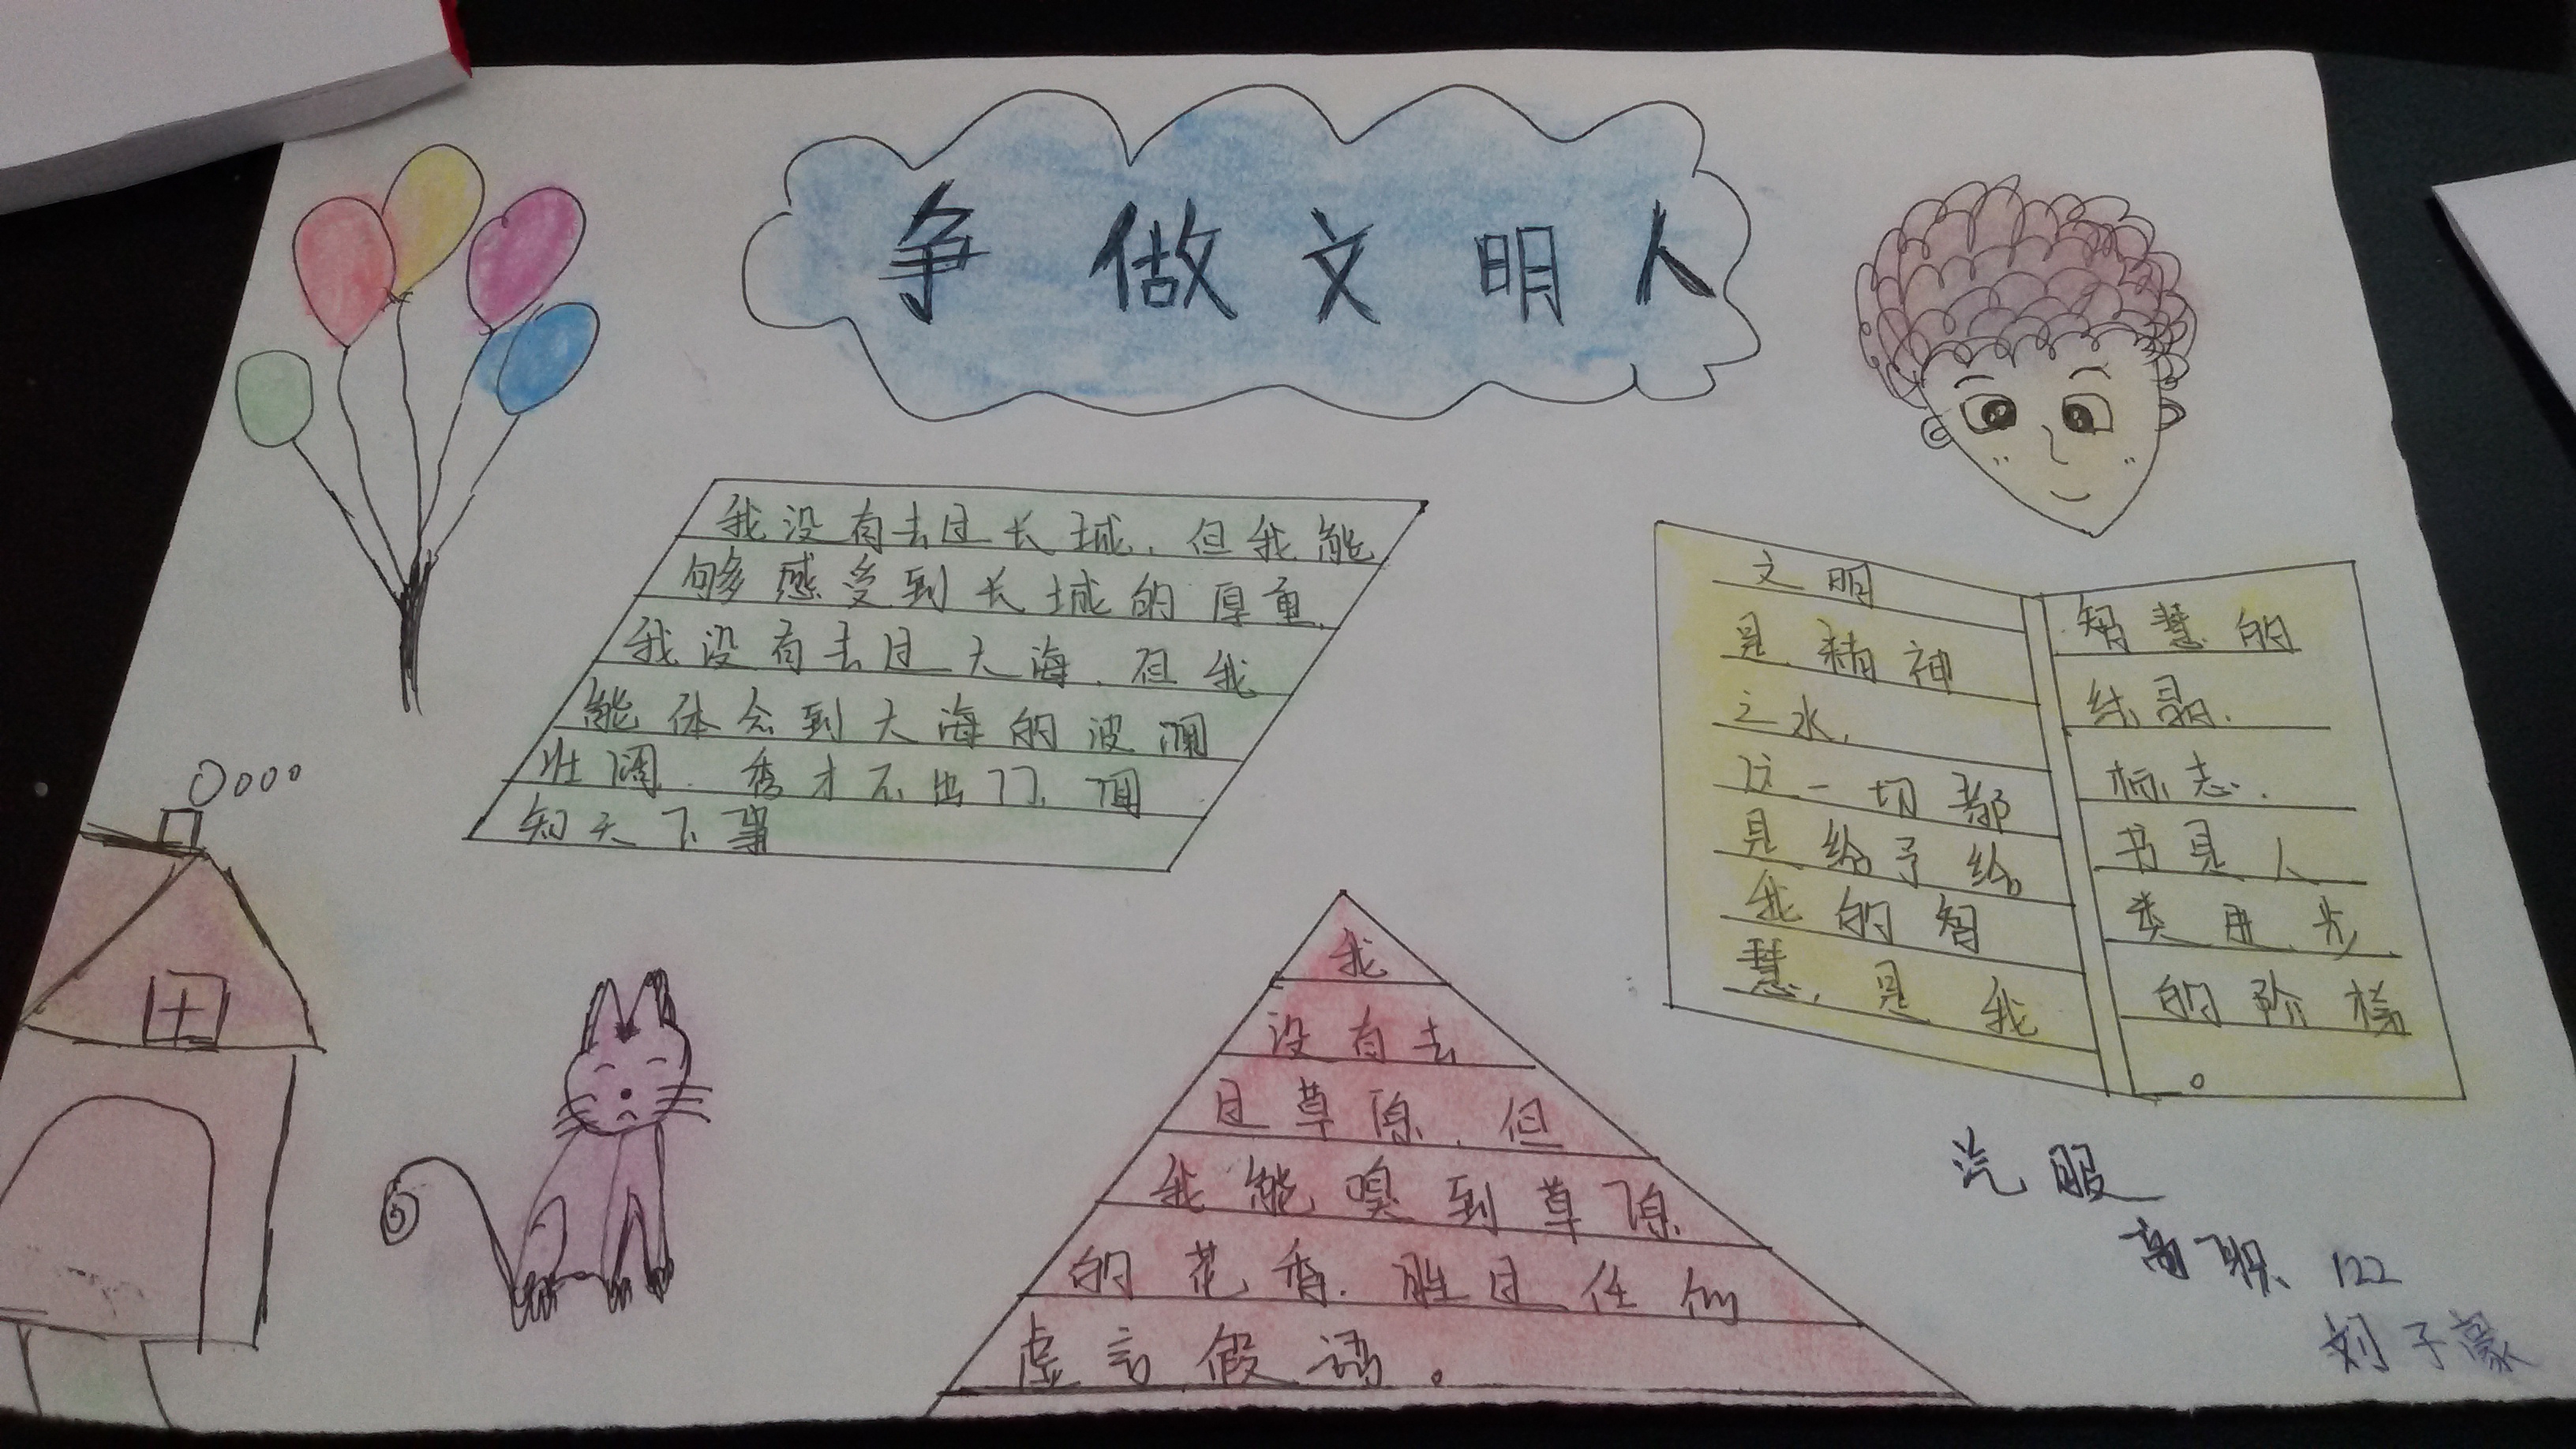 争做文明人
我没有去过长城，但我能
够感受到长城的厚重，
我没有去过大海，但我
能体会到大海的波澜
壮阔，秀才不出门，闻
知天下事
文明
是精神
之水，
这一切都
是给予给
我的智
慧，是我
智慧的
结晶，
标志，
书是人
类进步
的阶梯
。
我
没有去
过草原，但
我能嗅到草原
的花香，胜过任何
虚言假语。
汽服
高职122
刘子豪